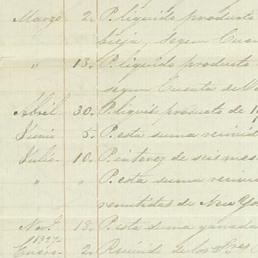 Marzo 2. P. liquido producto
vieja, segun Cuen
" 13. P. liquido producto
segun Cuenta de V
Abril 30. P. liquido producto de 19
Junio 5. P. esta suma remitid
Julio 10. P. interez de seis mese
" " P. esta suma remitid
remitidas de New Yo
Novb. 13. P. esta suma ganada
1827
Enero 2. Recivido de los Sres